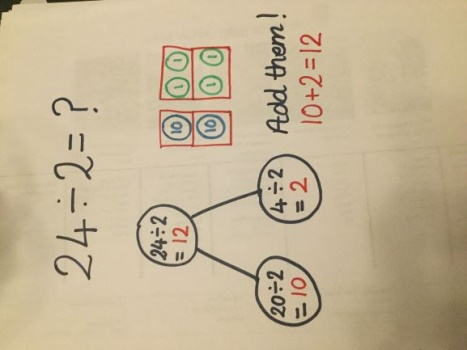 24÷2=?
24÷2
=12
20÷2
=10
4÷2
=2
10 1 1
10 1 1
Add them!
10+2=12